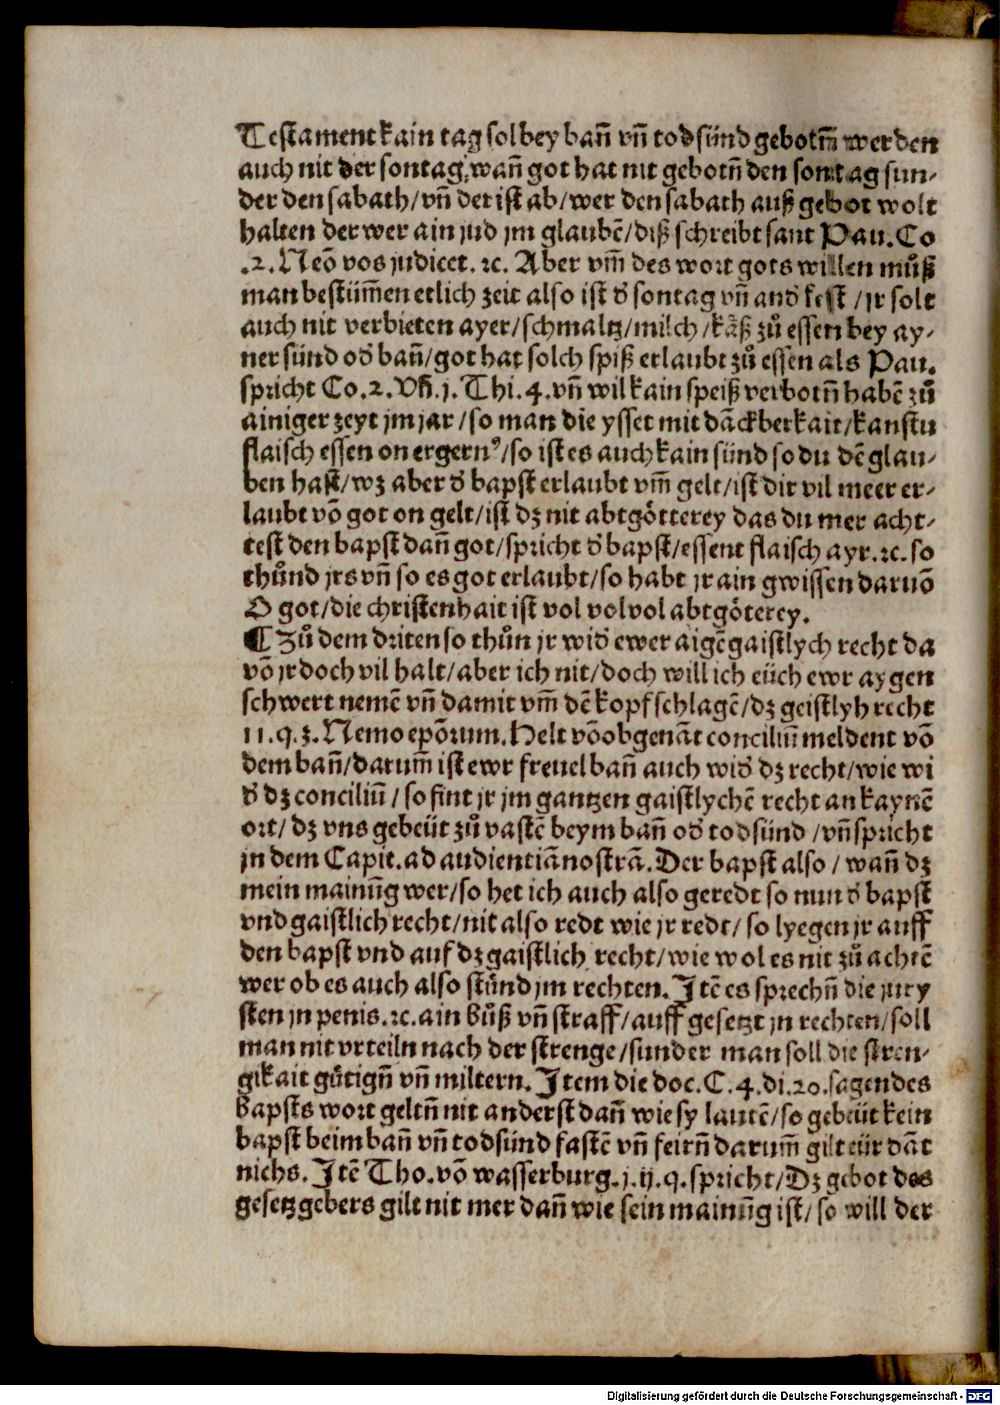 Testament kain tag sol bey bañ vñ todsünd gebotm̄ werden
auch nit der sontag, wañ got hat nit gebotñ den sontag sun⸗
der den sabath/ vñ der ist ab/ wer den sabath auß gebot wolt
halten der wer ain jud jm glaubē/ diß schreibt sant Pau. Co
.2. Neō vos judicet. ꝛc. Aber vm̄ des wort gots willen můß
man bestüm̄en etlich zeit also ist ď sontag vñ anď fest / jr solt
auch nit verbieten ayer/ schmaltz/ milch /käß zů essen bey ay⸗
ner sünd oď bañ/ got hat solch spiß erlaubt zů essen als Pau.
spricht Co.2. Vñ.j. Thi.4. vñ wil kain speiß verbotñ habē zů
ainiger zeyt jm jar / so man die ysset mit dāckberkait/ kanstu
flaisch essen on ergernꝰ/ so ist es auch kain sünd so du dē glau⸗
ben hast/ wz aber ď bapst erlaubt vm̄ gelt/ ist dir vil meer er⸗
laubt vō got on gelt/ ist dz nit abtgötterey das du mer acht⸗
test den bapst dañ got/ spricht ď bapst/ essent flaisch ayr.ꝛc. so
thůnd jrs vñ so es got erlaubt/ so habt jr ain gwissen daruō
O got/ die christenhait ist vol vol vol abtgöterey.
¶ Zů dem driten so thůn jr wiď ewer aigē gaistlych recht da
vō jr doch vil halt/ aber ich nit/ doch will ich eüch ewr aygen
schwert nemē vñ damit vm̄ dē kopf schlagē/ dz geistlyh recht
11.q.3. Nemo epōrum. Helt vō obgenāt conciliū meldent vō
dem bañ/ darum̄ ist ewr freuel bañ auch wiď dz recht/ wie wi
ď dz conciliū / so fint jr jm gantzen gaistlychē recht an kaynē
ort/ dz vns gebeüt zů vastē beym bañ oď todsünd / vñ spricht
jn dem Capit. ad audientiā nostrā. Der bapst also / wañ dz
mein mainūg wer/ so het ich auch also geredt so nun ď bapst
vnd gaistlich recht/ nit also redt wie jr redt/ so lyegen jr auff
den bapst vnd auf dz gaistlich recht/ wie wol es nit zů achtē
wer ob es auch also stůnd jm rechten. Jtē es sprechñ die jury
sten jn penis.ꝛc. ain bůß vñ straff/ auff gesetzt jn rechten/ soll
man nit vrteiln nach der strenge/ sunder man soll die stren⸗
gikait gůtigñ vñ miltern. Jtem die doc. C.4.di.20. sagen des
bapsts wort geltñ nit anderst dañ wie sy lautē/ so gebeüt kein
bapst beim bañ vñ todsünd fastē vñ feirñ darum̄ gilt eür dāt
nichs. Jtē Tho. vō wasserburg.j.ij.q. spricht/ Dz gebot des
gesetzgebers gilt nit mer dañ wie sein mainūg ist/ so will der
Digitalisierung gefördert durch die Deutsche Forschungsgemeinschaft - DFG